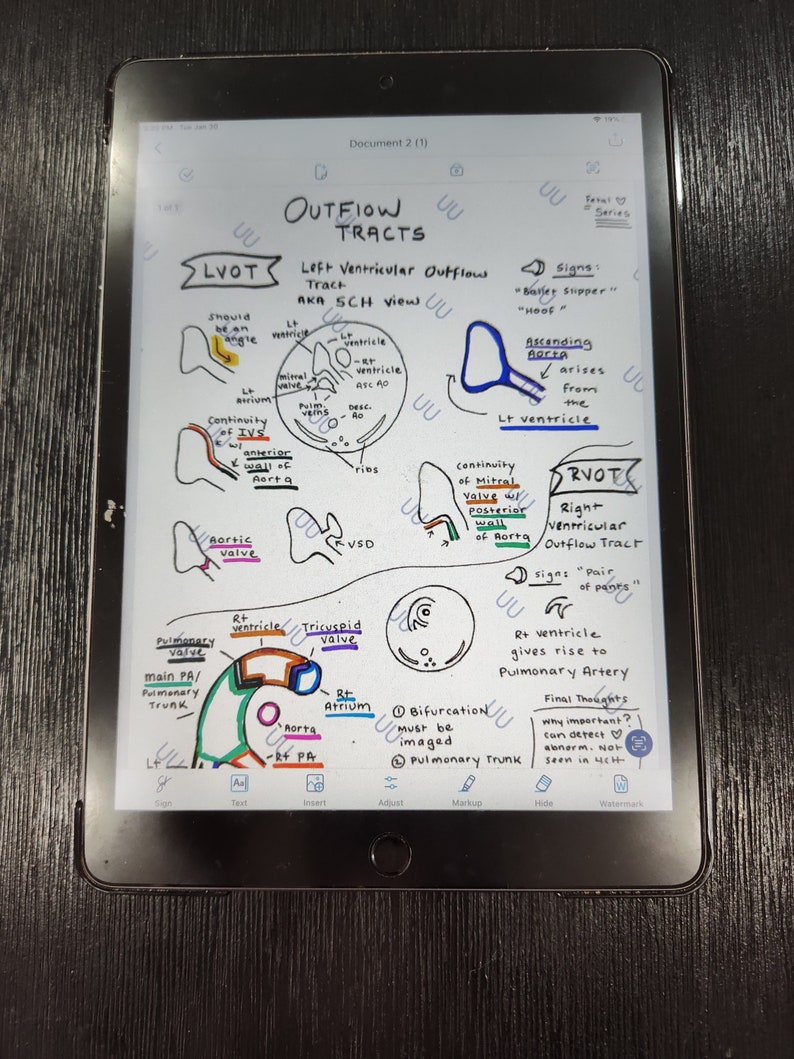 Tue Jan 30
19%
Document 2 (1)
1 of 1
OUTFLOW
TRACTS
Fetal
Series
LVOT
Left Ventricular Outflow
Tract
AKA 5CH view
Signs:
"Ballet Slipper"
"Hoof"
Should
be an
angle
Lt
ventricle
Lt
ventricle
Rt
ventricle
ASC AO
mitral
valve
Lt
Atrium
Pulm.
veins
Desc.
AO
ribs
Ascending
Aorta
arises
from
the
Lt ventricle
Continuity
of IVS
w/
anterior
wall of
Aorta
Continuity
of Mitral
Valve w/
posterior
wall
of Aorta
Aortic
valve
VSD
RVOT
Right
Ventricular
Outflow Tract
sign: "Pair
of pants"
Rt ventricle
gives rise to
Pulmonary Artery
Rt
ventricle
Tricuspid
valve
Pulmonary
valve
main PA/
Pulmonary
Trunk
Rt
Atrium
Aorta
Rt PA
Lt
① Bifurcation
must be
imaged
② Pulmonary Trunk
Final Thoughts
Why important?
can detect ♡
abnorm. Not
seen in 4CH
Sign
Text
Insert
Adjust
Markup
Hide
Watermark